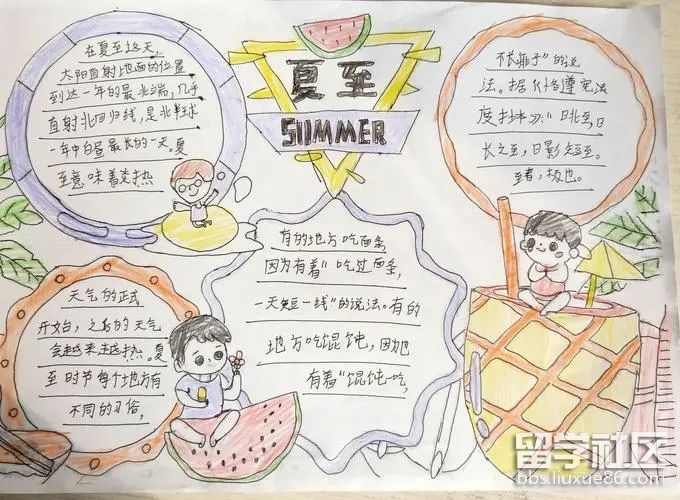 夏至
SUMMER
在夏至这天,
太阳直射地面的位置
到达一年的最北端,几乎
直射北回归线,是北半球
一年中白昼最长的一天。夏
至意味着炎热
天气的正式
开始,之后的天气
会越来越热。夏
至时节每个地方有
不同的习俗,
有的地方吃面条
因为有着“吃过面条,
一天短一线”的说法。有的
地方吃馄饨,因为也
有着“馄饨吃,
的说
法。据《恪遵宪法
度抄本》:“日北至,日
长之至,日影短至。
至者,极也。
留学社区
bbs.liuxue86.com